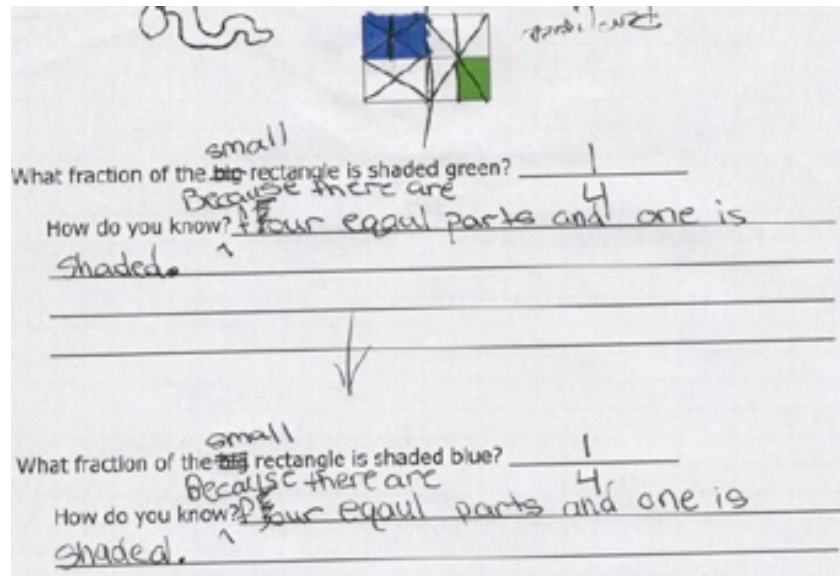 small
What fraction of the big rectangle is shaded green? 1/4
Because there are
How do you know? four eqaul parts and one is
shaded.
small
What fraction of the big rectangle is shaded blue? 1/4
Because there are
How do you know? four eqaul parts and one is
shaded.